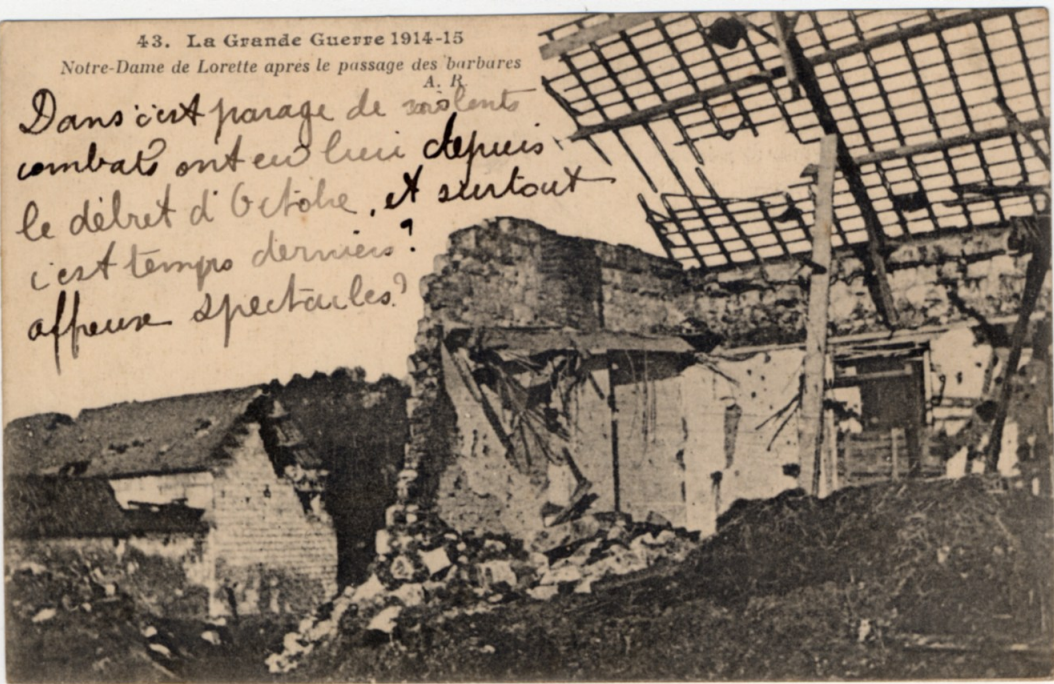 43. La Grande Guerre 1914-15
Notre-Dame de Lorette après le passage des barbares
A. R.
Dans c'est parage de violents
combats ont eu lieu depuis
le débret d'Octobre, et surtout
c'est temps derniers?
affreux spectacles?